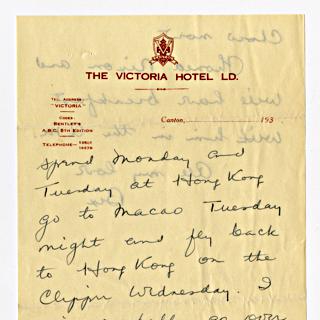 THE VICTORIA HOTEL LD.
TEL. ADDRESS
"VICTORIA"
CODES
BENTLEY'S
A.B.C. 5TH EDITION
TELEPHONE
Canton, 193
spend Monday and
Tuesday at Hong Kong
go to Macao Tuesday
night and fly back
to Hong Kong on the
Clipper Wednesday. I
go over